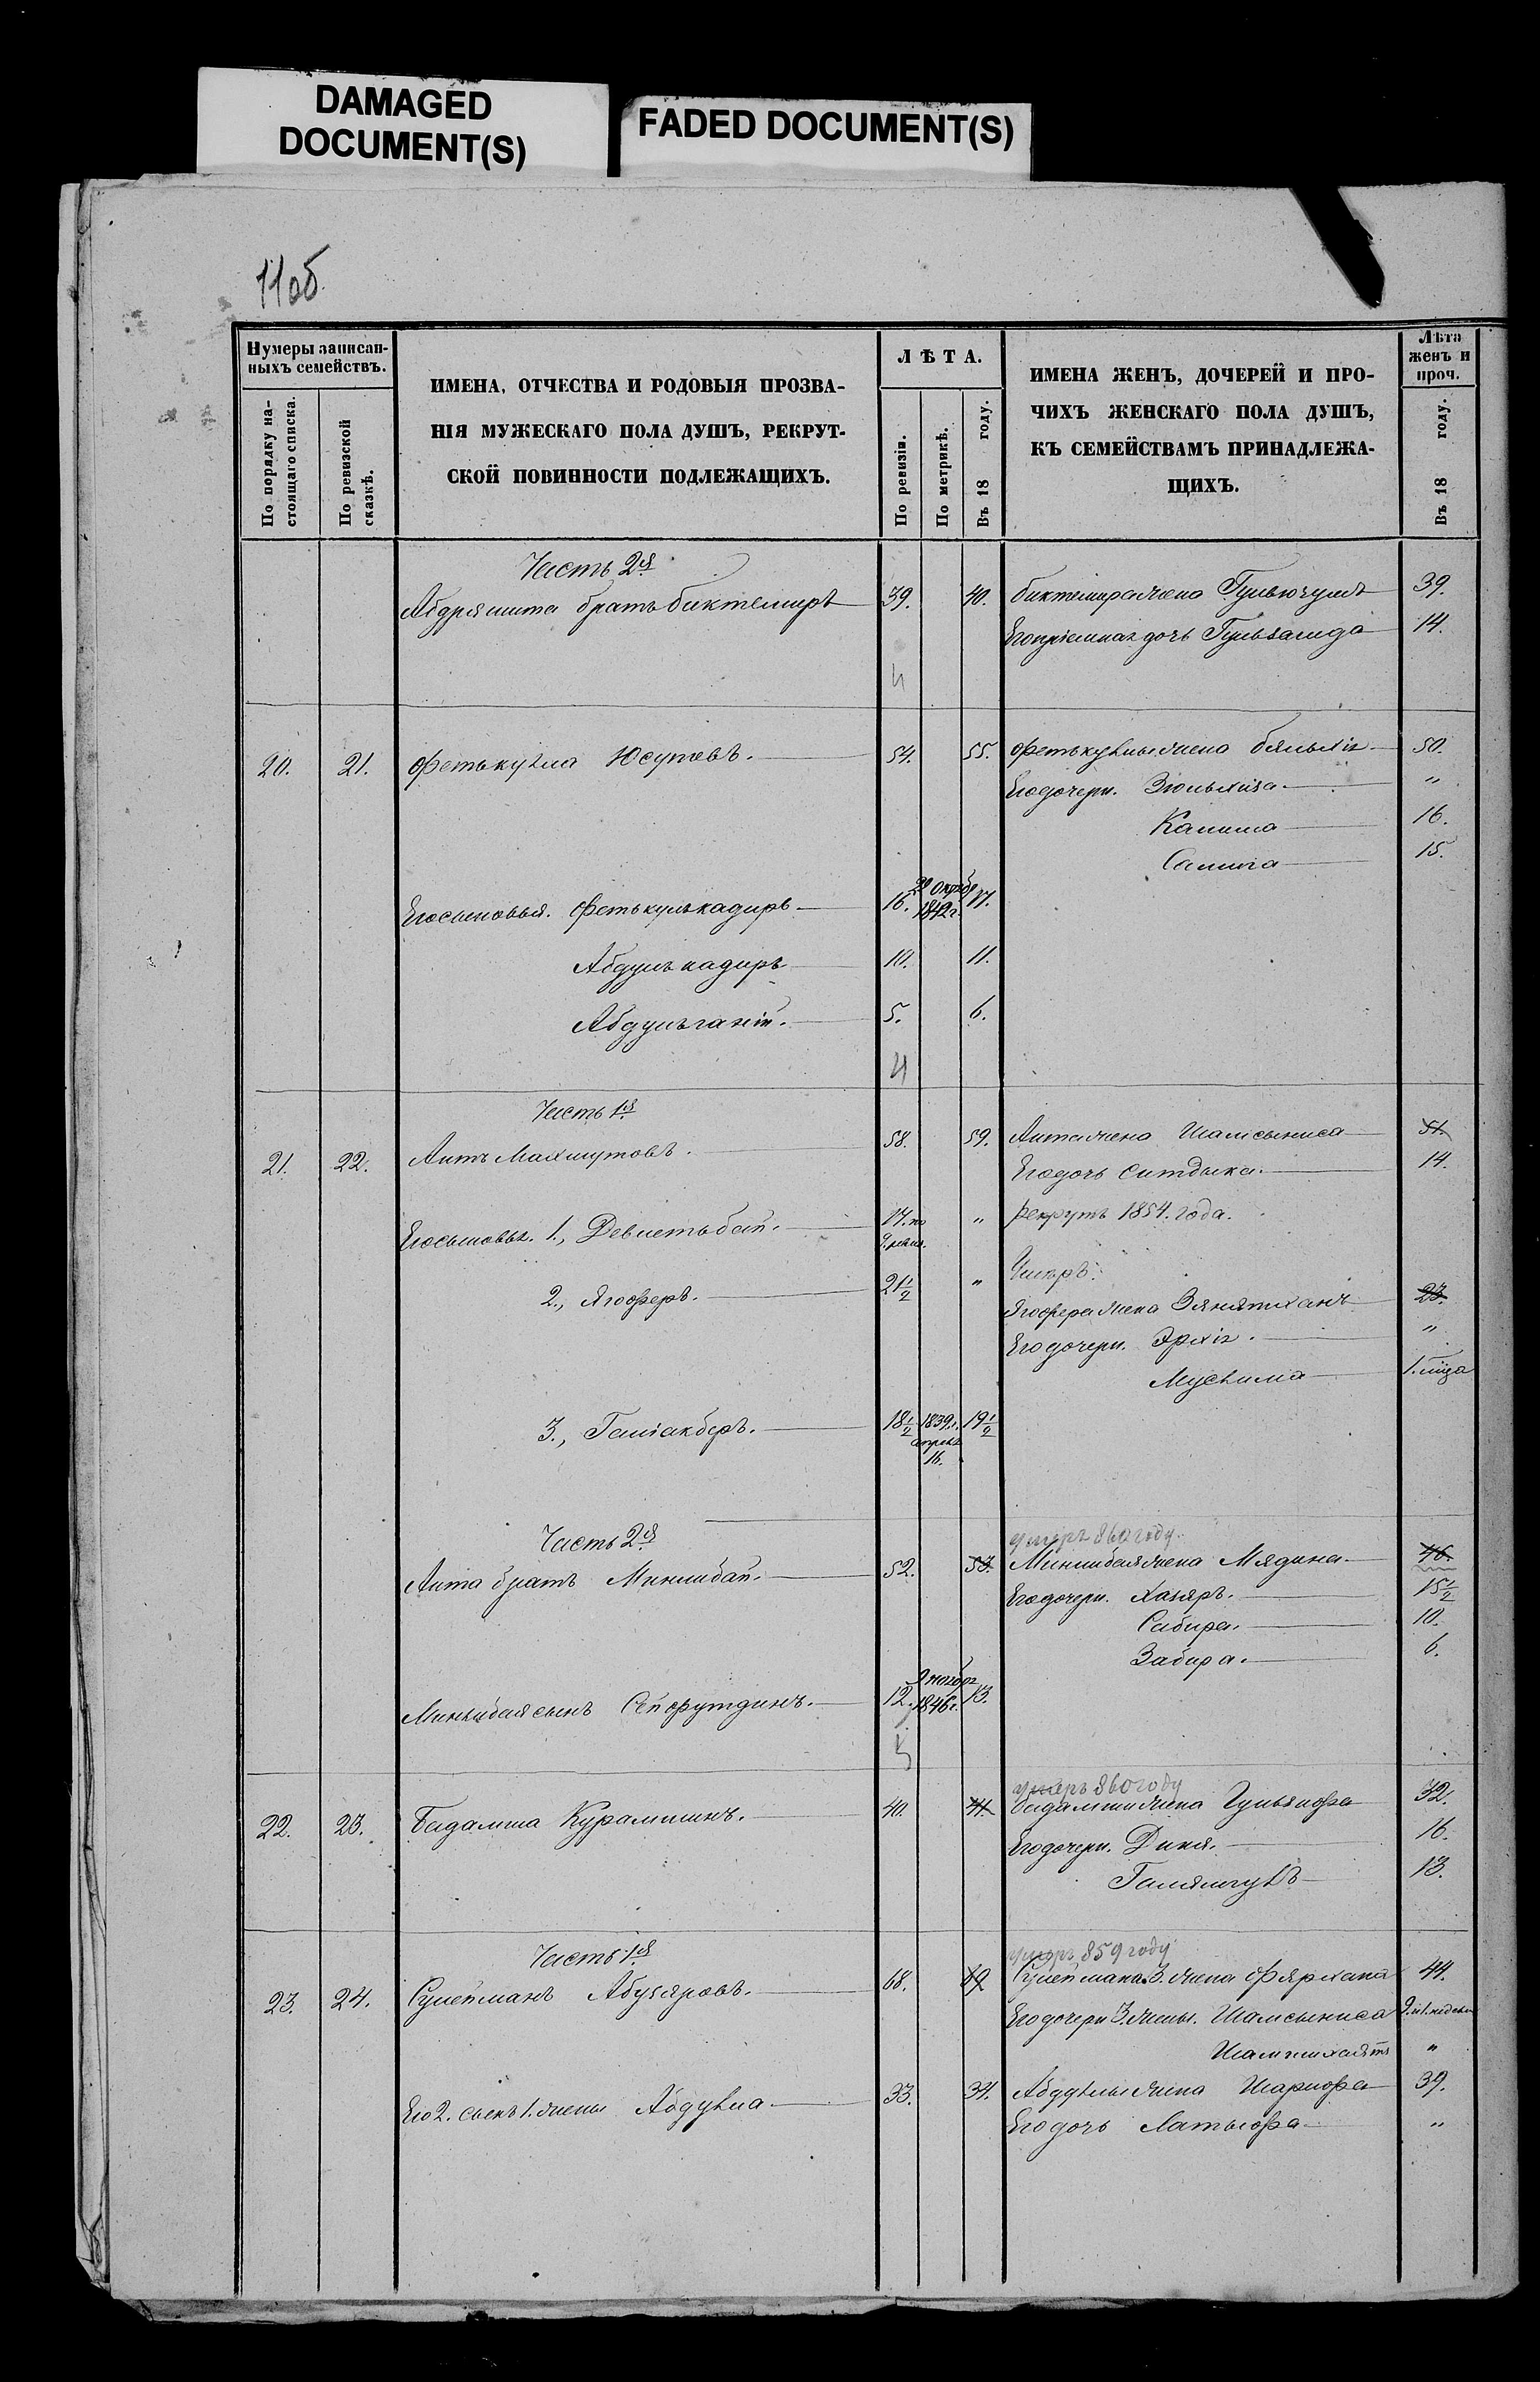 DAMAGED
DOCUMENT(S)
FADED DOCUMENT(S)
11об.
Нумеры записан-
ныхъ семействъ.
По порядку на-
стоящаго списка.
По ревизской
сказкѣ.
ИМЕНА, ОТЧЕСТВА И РОДОВЫЯ ПРОЗВА-
НІЯ МУЖЕСКАГО ПОЛА ДУШЪ, РЕКРУТ-
СКОЙ ПОВИННОСТИ ПОДЛЕЖАЩИХЪ.
ЛѢТА.
По ревизіи.
По метрикѣ.
Въ 18 году.
ИМЕНА ЖЕНЪ, ДОЧЕРЕЙ И ПРО-
ЧИХЪ ЖЕНСКАГО ПОЛА ДУШЪ,
КЪ СЕМЕЙСТВАМЪ ПРИНАДЛЕЖА-
ЩИХЪ.
Лѣта
женъ и
проч.
Въ 18 году.
Часть 2я
Абдряшита братъ биктемиръ 39. 40. биктемира жена Гульюзумъ 39.
Его пріемная дочь Гульзагида 14.
4
20. 21. Фетькулла Юсуповъ. 54. 55. Фетькуллы жена бяльхія 50.
Его дочери. Зюльхиза "
Камила 16.
Салиха 15.
Его сыновья. Фетькулькадиръ 16. 20 октбр 1842г. 17.
Абдулъкадиръ 10. 11.
Абдулъганій. 5. 6.
4
Часть 1я
21. 22. Аитъ Махмутовъ. 58. 59. Аита жена Шамсыниса 51.
Его дочь Ситдыка. 14.
Его сыновья. 1., Девлетьбай. 17. по 9. ревиз. " рекрутъ 1854. года.
2., Ягоферъ. 21 1/2 " Умеръ.
Ягофера жена Зянятиханъ 23.
Его дочери. Эрхія. "
Муслима 1. года
3., Галіакберъ. 18 1/2 1839г. апреля 16. 19 1/2
Часть 2я
умеръ 860 году.
Аита братъ Минлибай. 52. 53. Минлибая жена Мядина 46.
Его дочери. Хазяръ. 15 1/2
Сабира. 10.
Забира. 6.
Минлибая сынъ Сейфутдинъ. 12. 9 ноября 1846г. 13.
5
умеръ 860 году
22. 23. Бадамша Курамшинъ. 40. 41. бадамши жена Гульзифа 32.
Его дочери. Диня. 16.
Галямгулъ 13.
Часть 1я
умеръ 859 году
23. 24. Сулейманъ Абузяровъ. 68. 69 Сулеймана 3. жена Фярхана 44.
Его дочери 3. жены. Шамсыниса 9. и 1. недель
Шамсихаятъ "
Его 2. сынъ 1. жены Абдулла 33. 34. Абдуллы жена Шарифа 39.
Его дочь Латыфа "